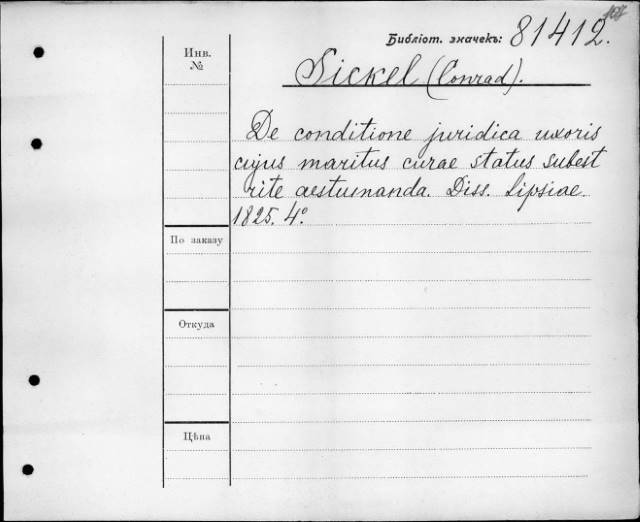 107
Библіот. значекъ: 81412.
Инв.
№
Sickel (Conrad).
De conditione juridica uxoris
cujus maritus curae status subest
rite aestumanda. Diss. Lipsiae.
1825. 4º.
По заказу
Откуда
Цѣна